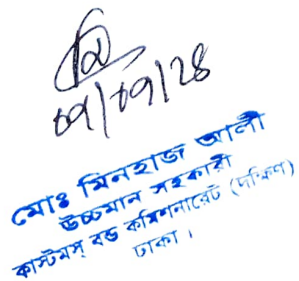 ০৭/০৭/২৪
মোঃ মিনহাজ আলী
উচ্চমান সহকারী
কাস্টমস্ বন্ড কমিশনারেট (দক্ষিণ)
ঢাকা।